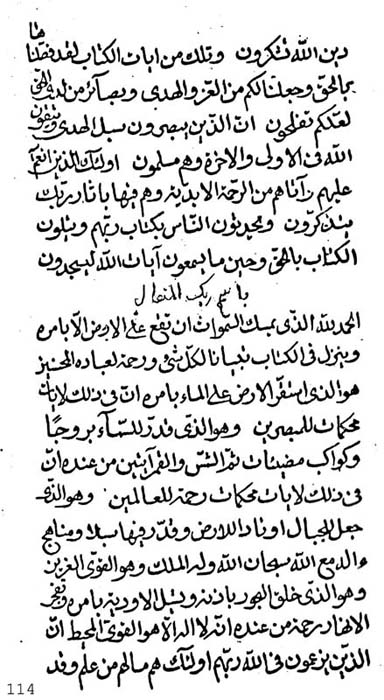 دين الله تشكرون وتلك من ايات الكتاب لقد فصلنا
ها
بالحق وجعلنا لكم من العز والهدى وبصآئر من لدى الحق
لعلكم تفلحون ان الذين يبصرون سبل الهدى ويتقون
الله فى الاولى والاخرة وهم مسلمون اولئك الذين انعم
عليهم و آتاهم من الرحمة الابدية وهم فيها باثار ربك
يتذكرون ويحدثون الناس بكتاب ربهم ويتلون
الكتاب بالحق وحين ما يسمعون آيات الله ليسجدون
باسم ربك المتعال
الحمد لله الذى يمسك السموات ان تقع على الارض الا بامره
وينزل فى الكتاب تبيانا لكل شئ ورحمة لعباده
هو الذى استقر الارض على الماء بامره ان فى ذلك لايات
محكمات للمبصرين وهو الذى قدر للسمآء بروجًا
وكواكب مضيئات ثم الشمس والقمر آيتين من عنده ان
فى ذلك لايات محكمات رحمة للعالمين وهو الذى
جعل الجبال اوتاد الارض وقدر فيها سبلا ومناهج
الله سبحان الله وله الملك وهو القوى العزيز
وهو الذى خلق البحور باذنه ويسل الاودية بامره ويفجر
الانهار رحمة من عنده انه لا اله الا هو القوى المحيط ان
الذين يدعون فى الله ربهم اولئك هم مالهم من علم وقد
114